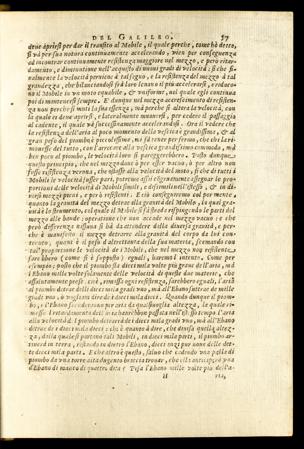 DEL GALILEO. 57
deue aprirsi per dar il transito al Mobile, il quale perche, come hò detto,
si và per sua natura continuamente accelerando, vien per conseguenza
ad incontrar continuamente resistenza maggiore nel mezzo, e però ritar-
damento, e diminuzione nell'acquisto di nuoui gradi di velocità: sì che fi-
nalmente la velocità peruiene à tal segno, e la resistenza del mezzo à tal
grandezza, che bilanciandosi frà loro leuano il più accelerarsi, e riducon-
no il Mobile in vn moto equabile, & vniforme, nel quale egli continua
poi di mantenersi sempre. È dunque nel mezzo accrescimento di resisten-
za non perche si muti la sua essenza, mà perche si altera la velocità, con
la quale ei deue aprirsi, e lateralmente muouersi, per cedere il passaggio
al cadente, il quale và successiuamente accelerandosi. Ora il vedere che
la resistenza dell'aria al poco momento della vescica è grandissima, & al
gran peso del piombo è piccolissima, mi fà tener per fermo, che chi la ri-
mouesse del tutto, con l'arrecare alla vescica grandissimo commodo, mà
ben poco al piombo, le velocità loro si pareggierebbero. Posto dunque,
questo principio, che nel mezzo doue ò per esser vacuo, ò per altro non
fusse resistenza veruna, che ostasse alla velocità del moto, sì che di tutti i
Mobili le velocità fusser pari, potremo assai congruamente assegnar le pro-
porzioni delle velocità di Mobili simili, e dissimili nell'istesso, & in di-
uersi mezzi pieni, e però resistenti. E ciò conseguiremo col por mente,
quanto la grauità del mezzo detrae alla grauità del Mobile, la qual gra-
uità è lo strumento, col quale il Mobile si fà strada respingendo le parti del
mezzo alle bande: operazione che non accade nel mezzo vacuo: e che
però differenza nissuna si hà da attendere dalla diuersa grauità, e per-
che è manifesto il mezzo detrarre alla grauità del corpo da lui con-
tenuto, quant'è il peso d'altrettanta della sua materia, scemando con
tal proporzione le velocità de i Mobili, che nel mezzo non resistente
sarebbero (come si è supposto) eguali, haremo l'intento. Come per
esempio; posto che il piombo sia dieci mila volte più graue dell'aria, mà
l'Ebano mille volte solamente delle velocità di queste due materie, che
assolutamente prese, cioè, rimossa ogni resistenza, sarebbero eguali, l'aria
al piombo detrae delli dieci mila gradi vno, mà all'Ebano suttrae de mille
gradi vno, ò vogliam dire de i dieci mila dieci. Quando dunque il piom-
bo, e l'Ebano scenderanno per aria da qualsiuoglia altezza, la quale ri-
mosso 'l ritardamento dell'aria haurebbon passata nell'istesso tempo l'aria
alla velocità del piombo detrarrà de i dieci mila gradi vno, mà all'Ebano
detrae de i dieci mila dieci: che è quanto à dire, che diuisa quella altez-
za, dalla quale si partono tali Mobili, in dieci mila parti, il piombo ar-
riuerà in terra, restando in dietro l'Ebano, dieci anzi pur noue delle det-
te dieci mila parti. E che altro è questo, saluo che cadendo vna palla di
piombo da vna torre alta dugento braccia trouar, che ella anticiperà vna
d'Ebano di manco di quattro dita? Pesa l'Ebano mille volte più dell'a-
H ria,